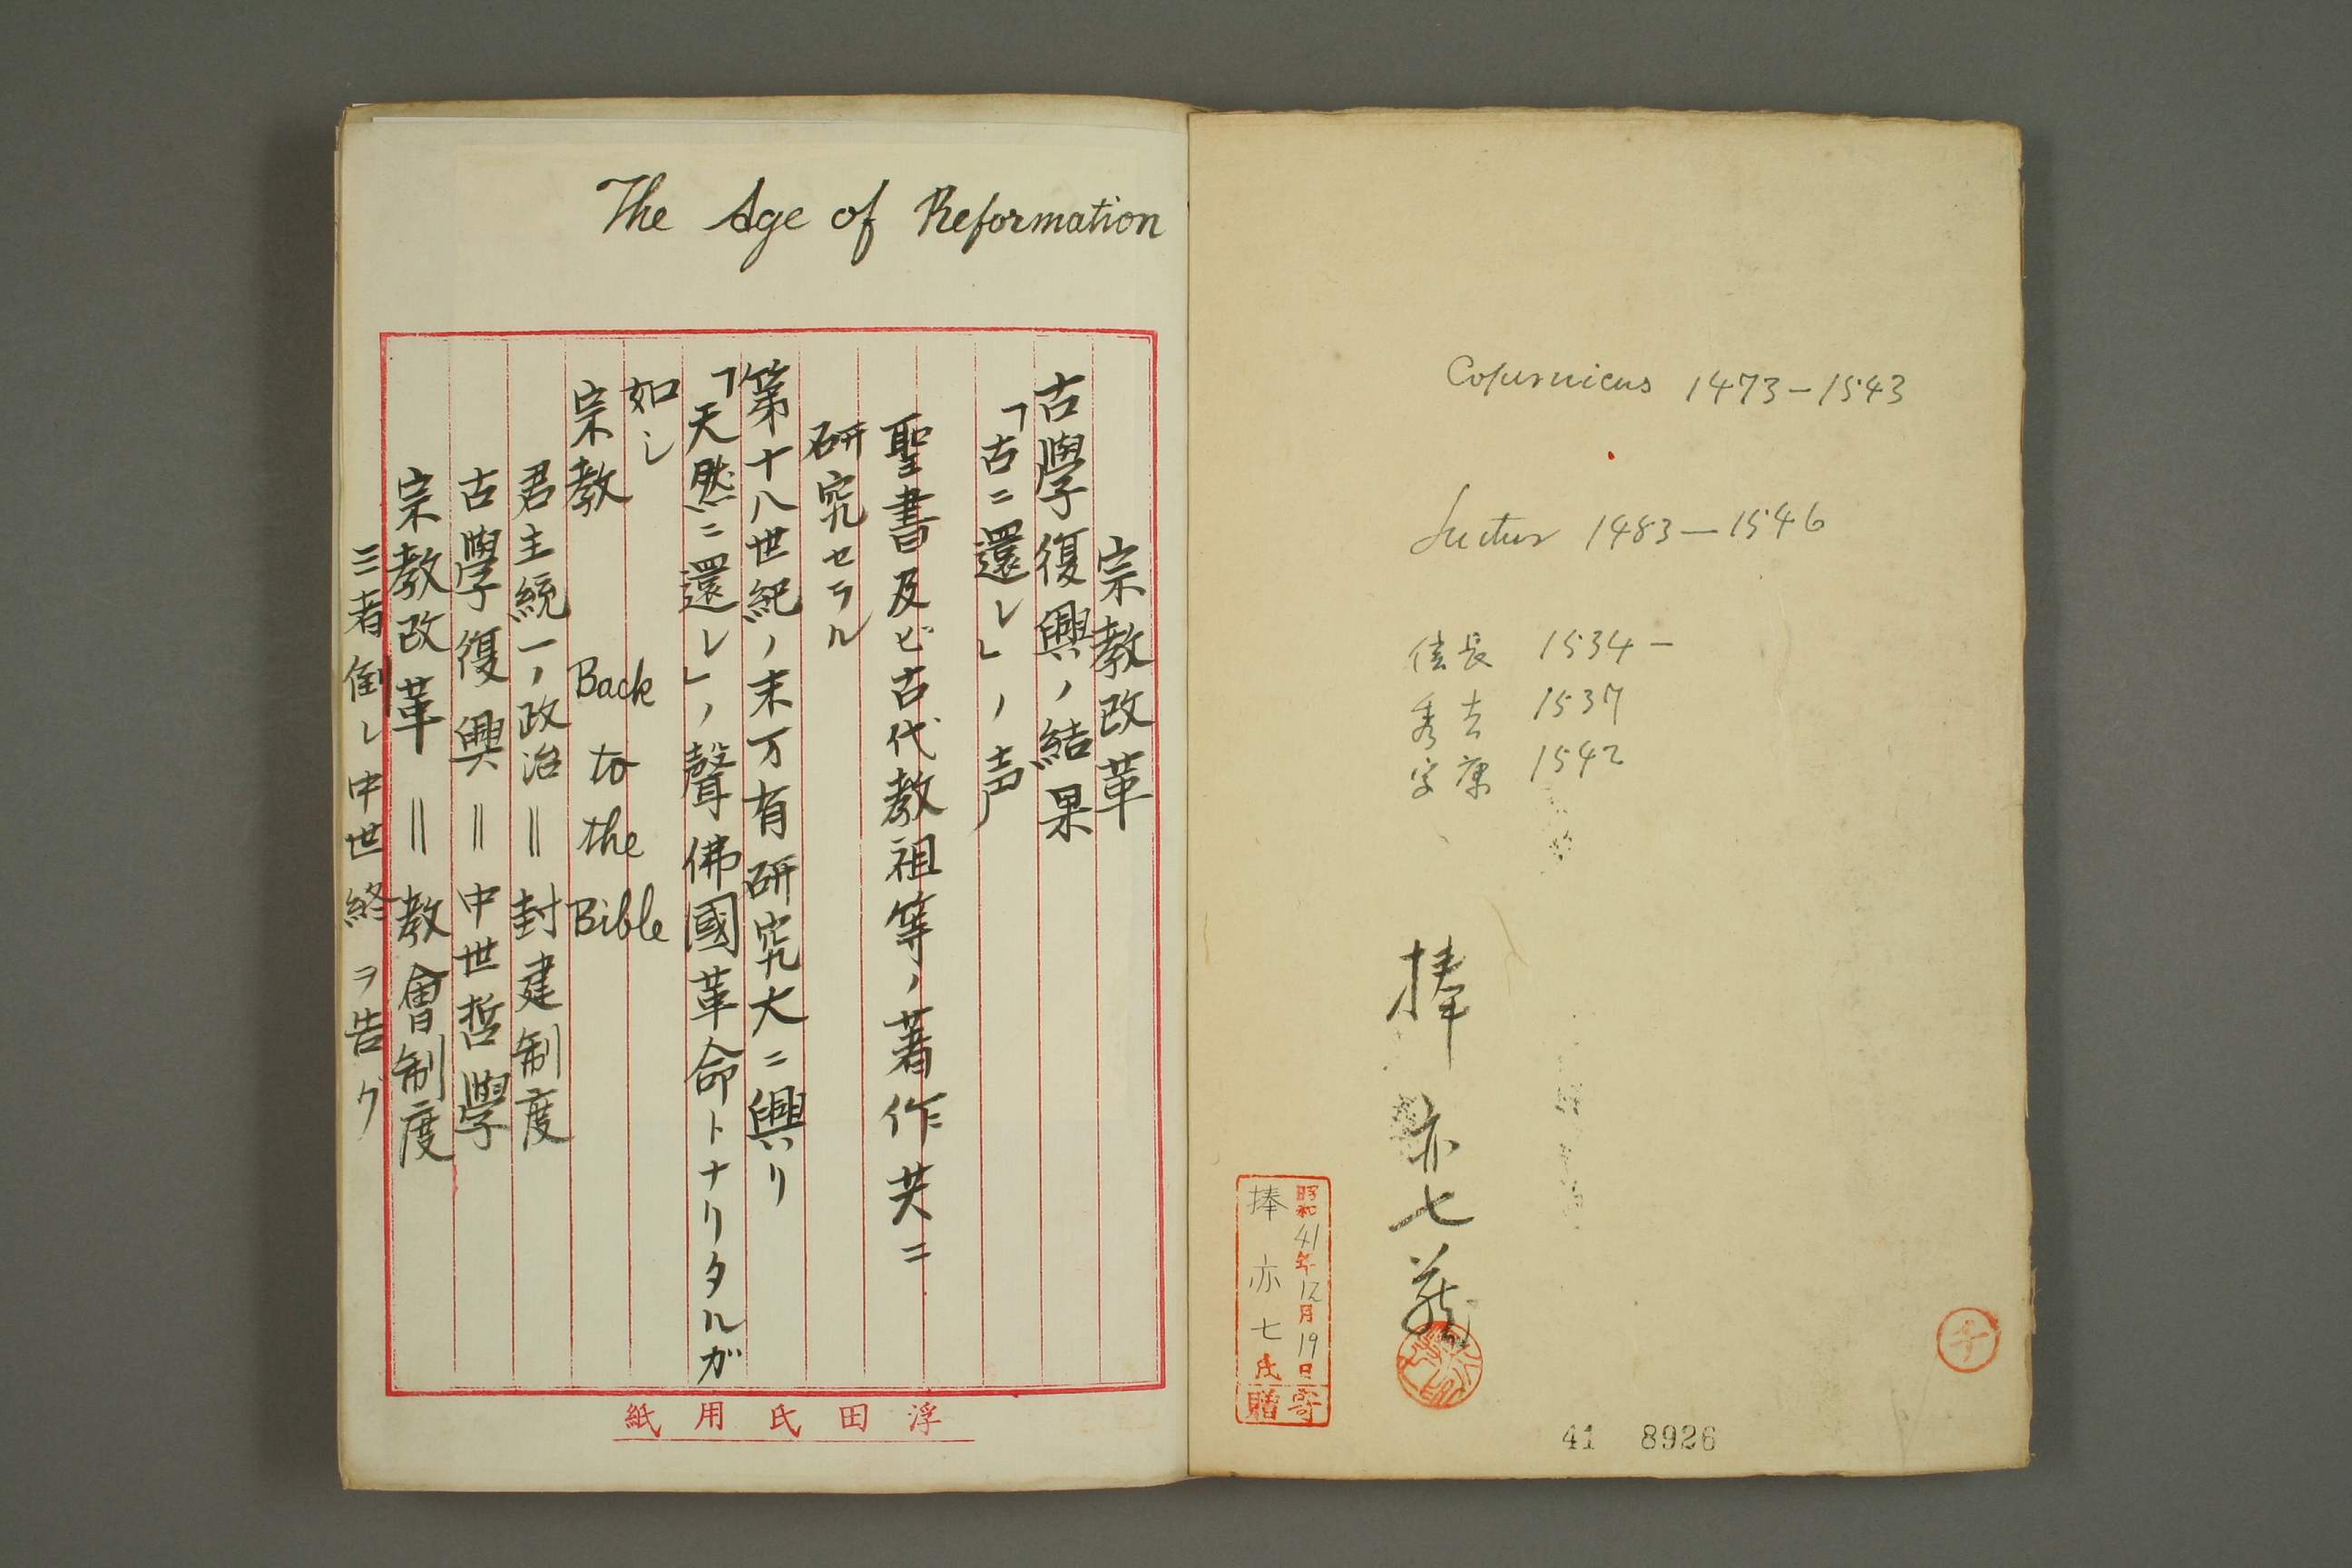 Copernicus 1473-1543
Luther 1483-1546
信長 1534-
秀吉 1537
家康 1542
捧亦七蔵
昭和41年12月19日寄
捧亦七氏贈
41 8926
The Age of Reformation
宗教改革
古學復興ノ結果
「古ニ還レ」ノ声
聖書及ビ古代教祖等ノ著作共ニ
研究セラル
第十八世紀ノ末万有研究大ニ興リ
「天然ニ還レ」ノ聲佛國革命トナリタルガ
如シ
宗教 Back to the Bible
君主統一ノ政治=封建制度
古學復興=中世哲學
宗教改革=教會制度
三者倒レ中世終ヲ告グ
浮田氏用紙